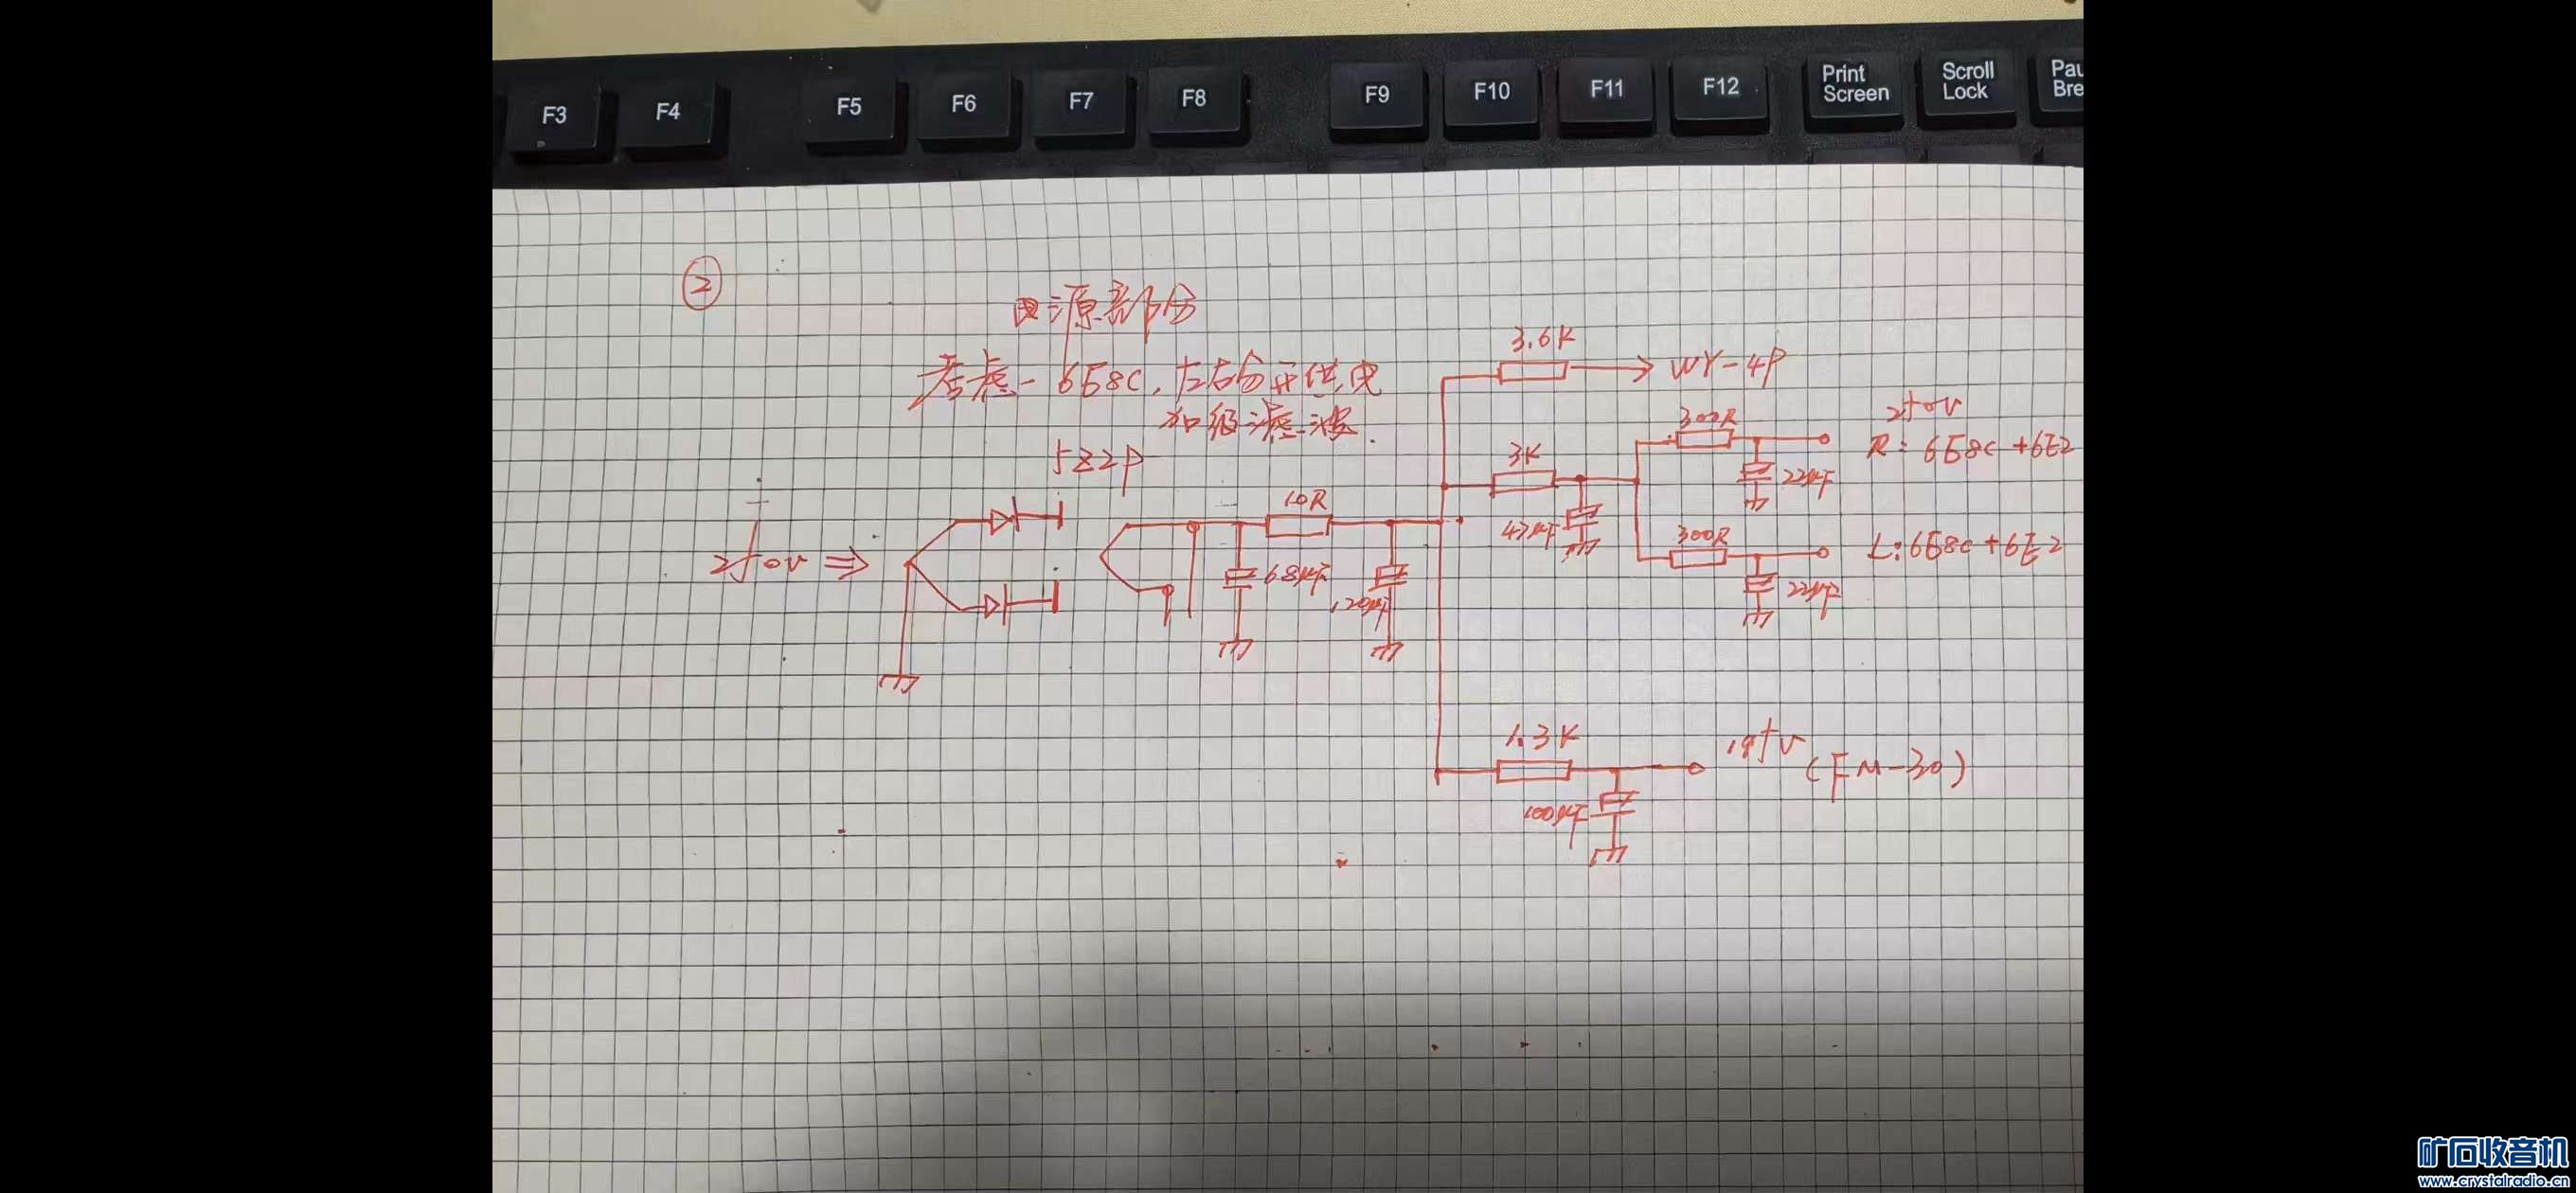 F3 F4 F5 F6 F7 F8 F9 F10 F11 F12
Print Screen
Scroll Lock
Pau
Bre
②
电源部分
考虑-6E8C,左右分开供电
加级滤波.
5Z2P
250V ⇒
10R
68μF
120μF
3.6K
WY-4P
3K
47μF
300R
22μF
250V
R: 6E8C+6E2
300R
22μF
L: 6E8C+6E2
1.3K
100μF
195V (FM-30)
矿石收音机
www.crystalradio.cn